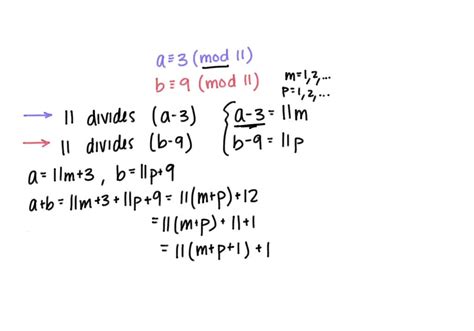 a≡3 (mod 11)
b≡9 (mod 11)
m=1,2,...
p=1,2,...
→ 11 divides (a-3)
{a-3=11m
→ 11 divides (b-9)
b-9=11p
a=11m+3, b=11p+9
a+b=11m+3+11p+9=11(m+p)+12
=11(m+p)+11+1
=11(m+p+1)+1